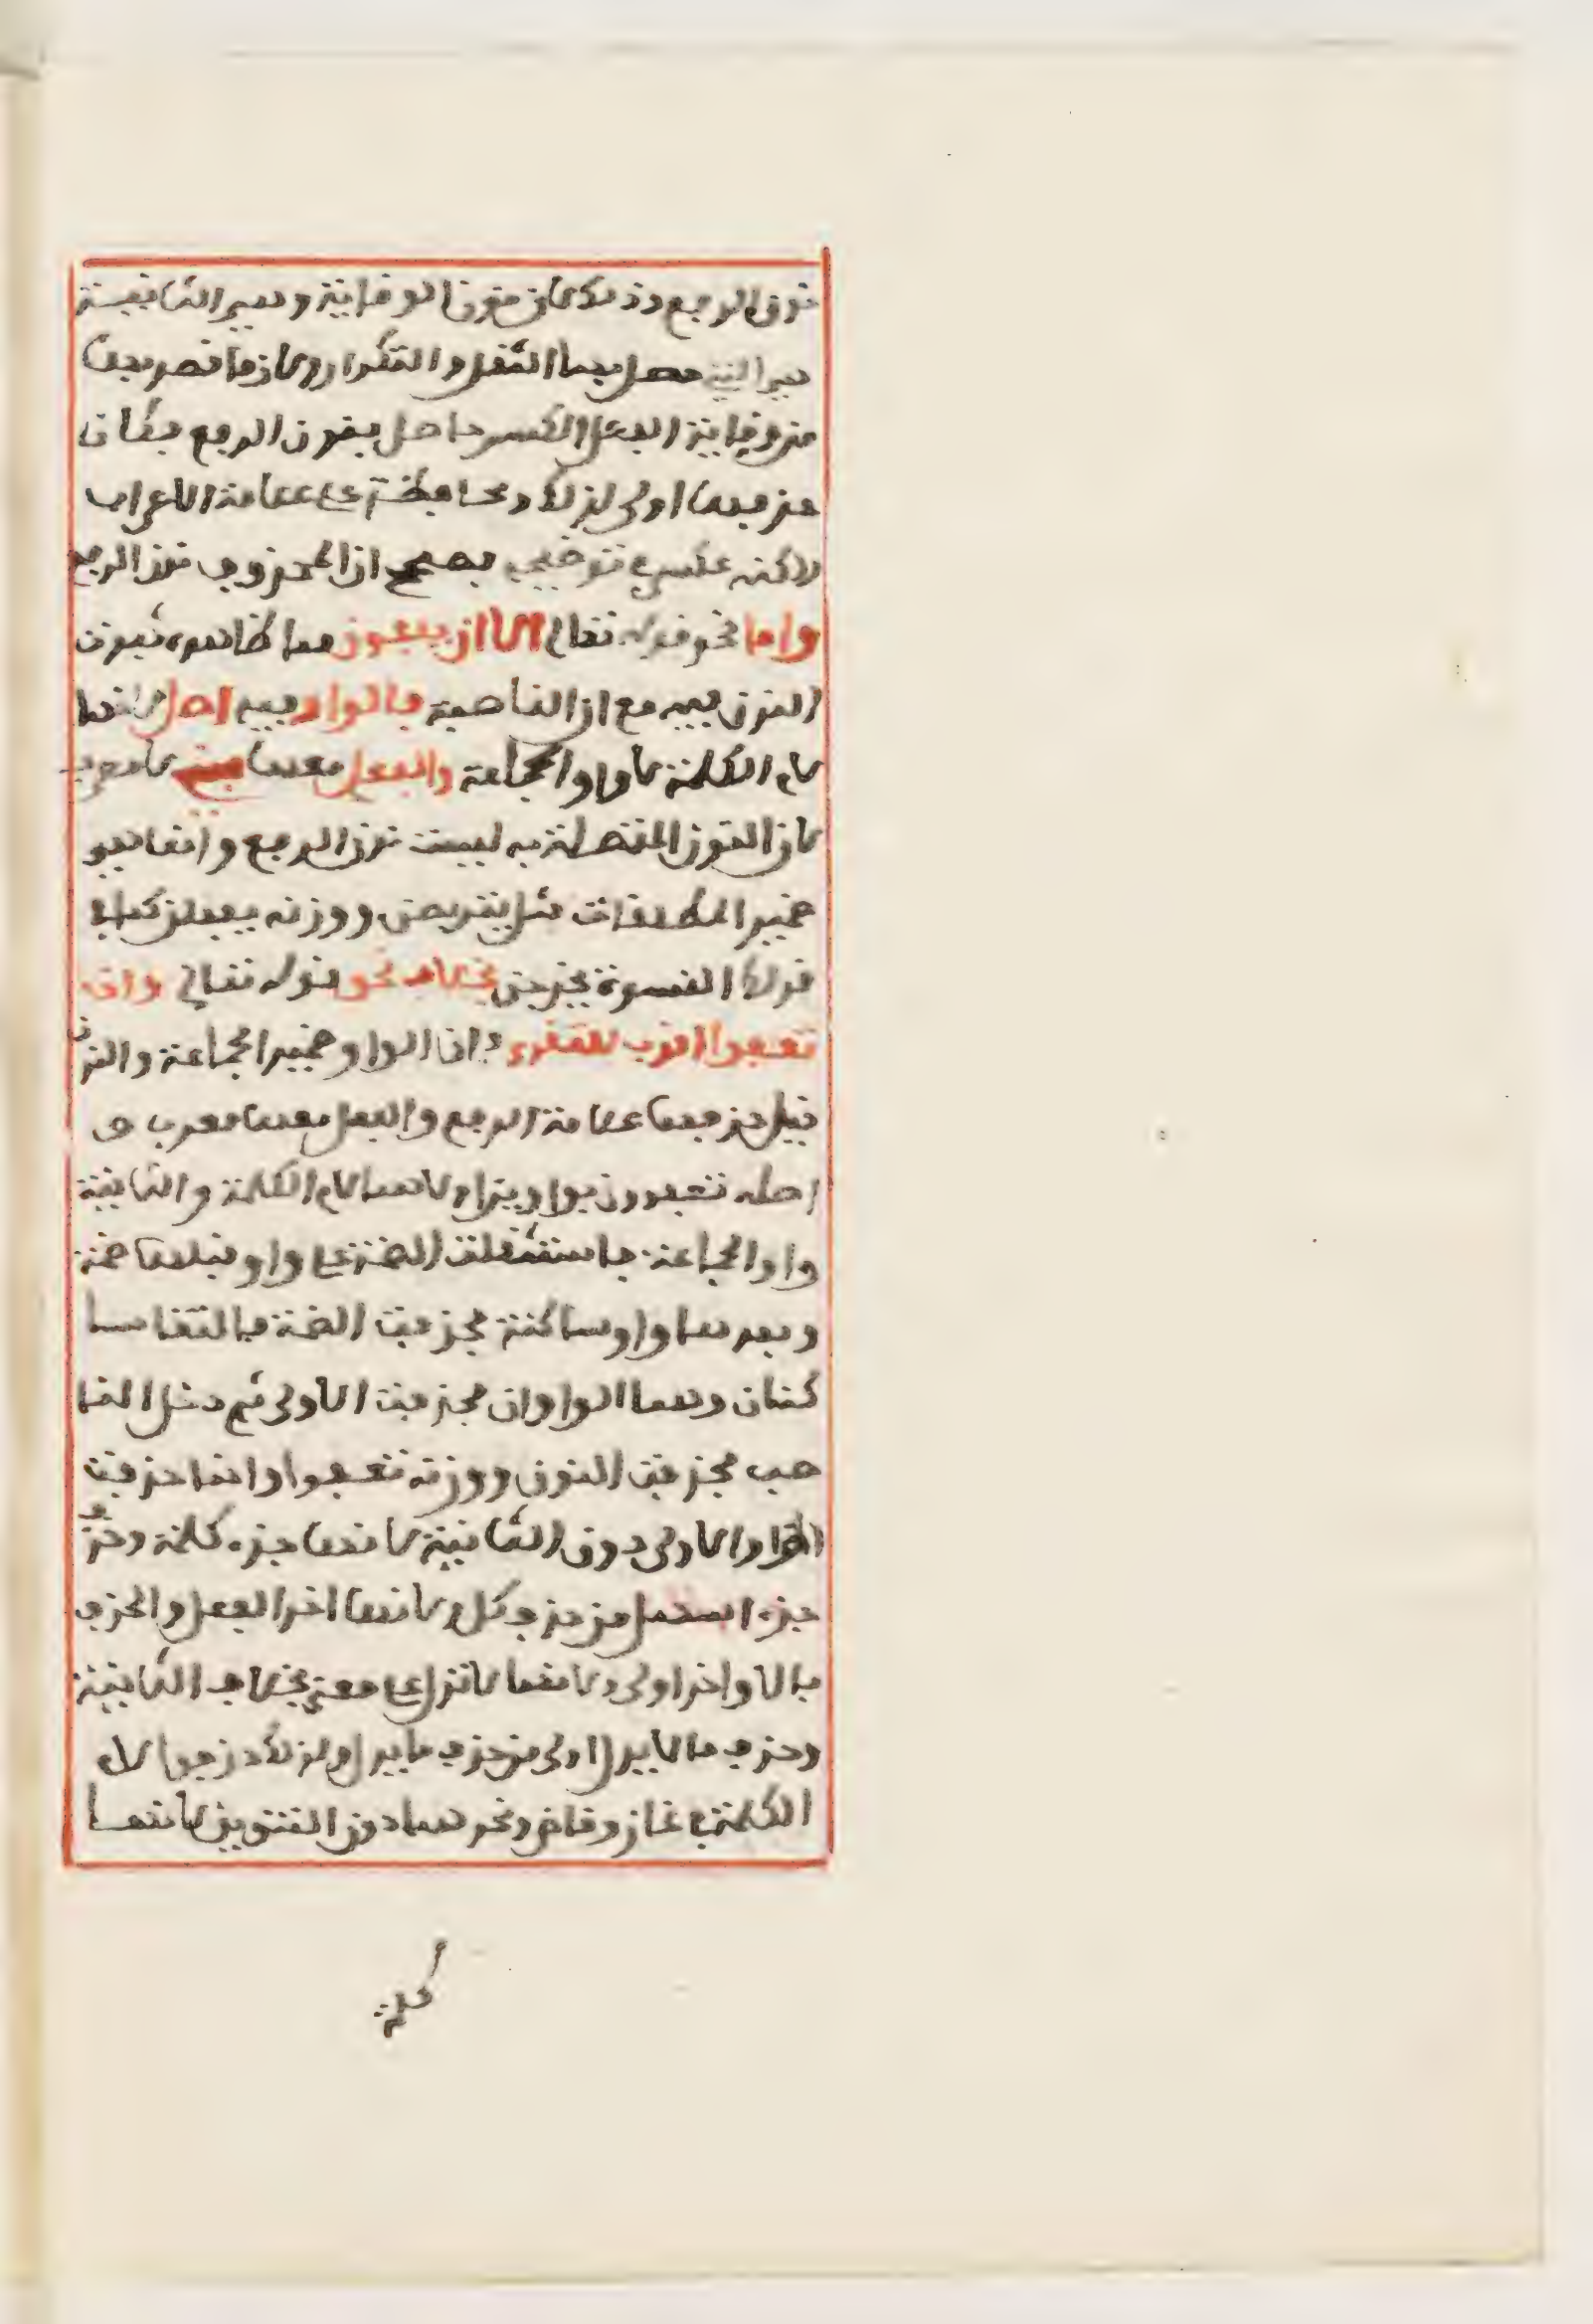 نون الرفع وذلك لان نون الوقاية وهي الثانية
هي التي حصل بها الثقل والتكرار ولان ما قصد بها
من وقاية الفعل الكسر حاصل بنون الرفع فكان
حذفها اولى لذلك ومحافظة على علامة الاعراب
لاكنه عكس في توضيحه فصحح ان المحذوف نون الرفع
واما نحو قوله تعالى الا ان يعفون مما ظاهره ثبوت
النون فيه مع ان الناصبة فالواو فيه اصل لانها
لام الكلمة لا واو الجماعة والفعل معها مبني لا معرب
لان النون المتصلة به ليست نون الرفع وانما هي
ضمير المطلقات مثل يتربصن ووزنه يفعلن كما في
قولك النسوة يخرجن بخلاف نحو قوله تعالى وان
تعفوا اقرب للتقوى فان الواو ضمير الجماعة والنون
قبل حذفها علامة الرفع والفعل معها معرب و
اصله تعفوون بواوين اولاهما لام الكلمة والثانية
واو الجماعة فاستثقلت الضمة على واو قبلها ضمة
وبعدها واو ساكنة فحذفت الضمة فالتقا سا
كنان وهما الواوان فحذفت الاولى ثم دخل النا
صب فحذفت النون ووزنه تعفوا وانما حذفت
الواو الاولى دون الثانية لانها جزء كلمة وحذف
جزء اسهل من حذف كل ولانها اخر الفعل والحذف
بالاواخر اولى ولانها لا تدل على معنى بخلاف الثانية
وحذف ما لا يدل اولى من حذف ما يدل ولذلك حذفوا لام
الكلمة في غاز وقاض ونحوهما دون التنوين لانها
كلمة